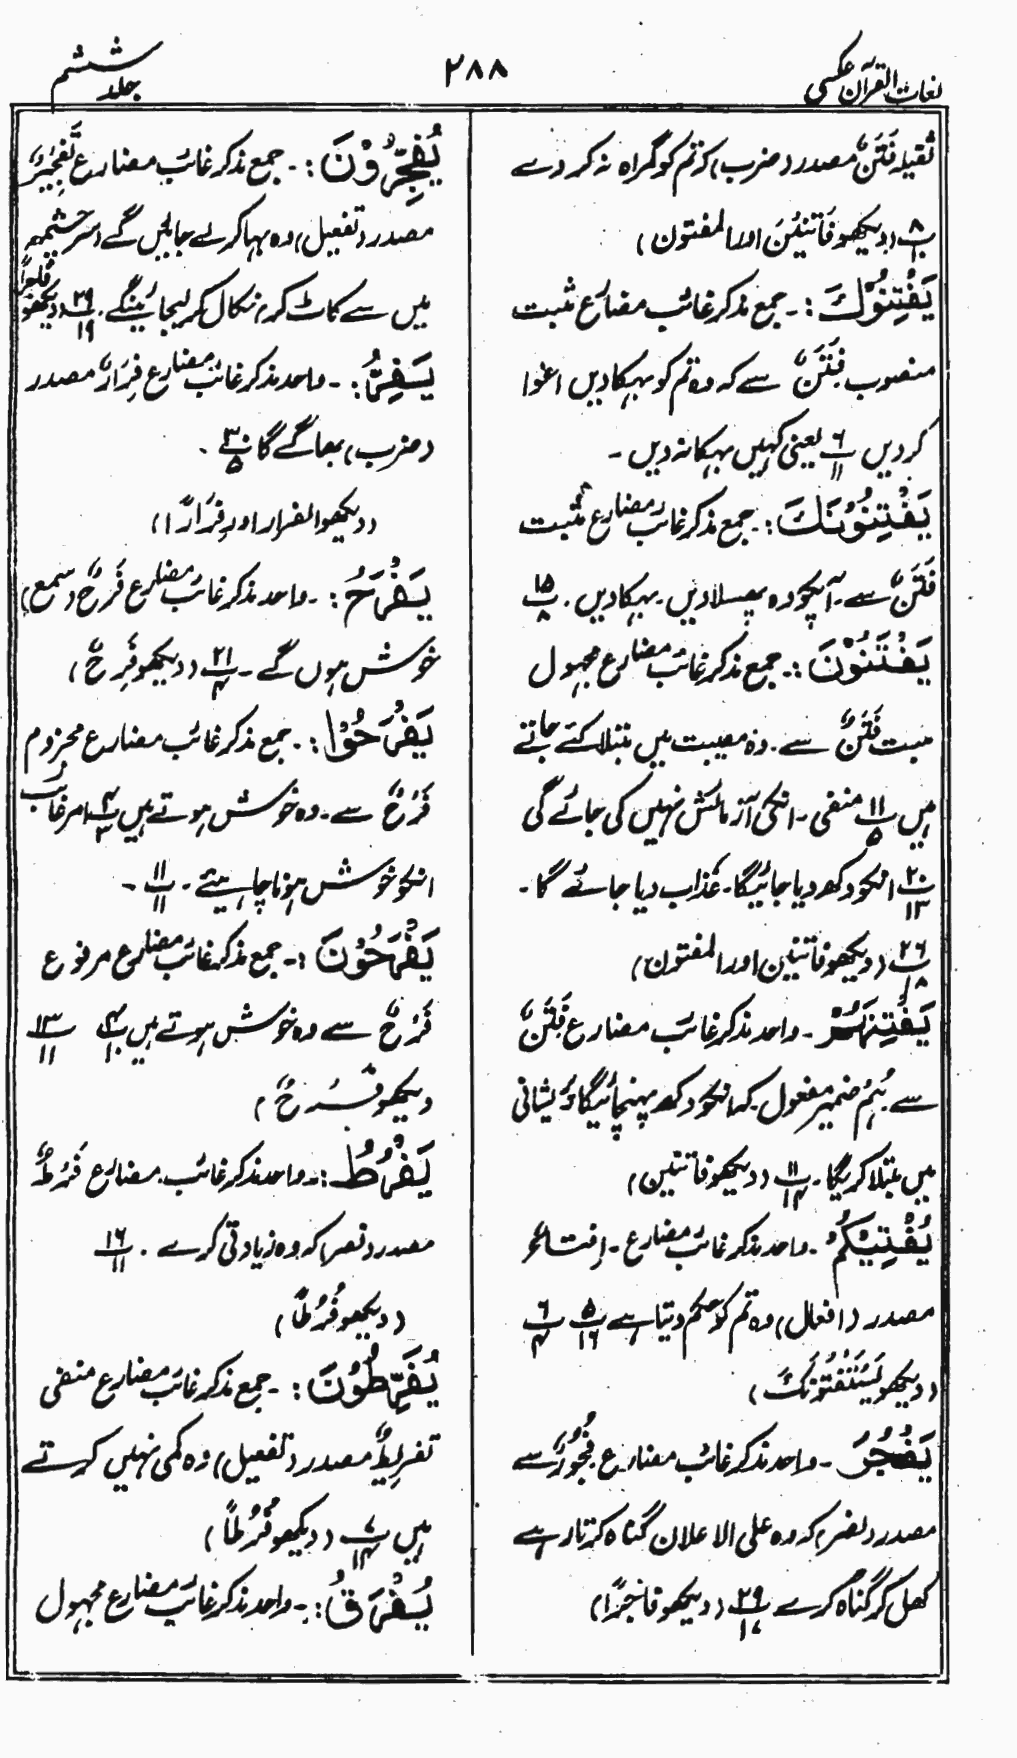 لغات القرآن عکسی
۲۸۸
جلد ششم
ثقیلہ فَتَنَ مصدر (ضرب) کہ تم کو گمراہ نہ کر دے
۸/۱۰ (دیکھو فَاتِنِیْنَ اور المفتون)
یَفْتِنُوْكَ :۔ جمع مذکر غائب مضارع مثبت
منصوب فَتَنَ سے کہ وہ تم کو بہکا دیں اغوا
کردیں ۶/۱۱ یعنی کہیں بہکا نہ دیں ۔
یَفْتِنُوْنَكَ :۔ جمع مذکر غائب مضارع مثبت
فَتَنَ سے ۔ آپکو وہ پھسلا دیں ۔ بہکا دیں ۔ ۱۵/۸
یَفْتَنُوْنَ :۔ جمع مذکر غائب مضارع مجہول
مثبت فَتَنَ سے ۔ وہ مصیبت میں مبتلا کئے جاتے
ہیں ۱۱/۵ منفی ۔ انکی آزمائش نہیں کی جائے گی
۲۰/۱۳ انکو دکھ دیا جائیگا ۔ عذاب دیا جائے گا ۔
۲۶/۱۸ (دیکھو فاتنین اور المفتون)
یَفْتِنَهُمْ ۔ واحد مذکر غائب مضارع فَتَنَ
سے ہُمْ ضمیر مفعول کہ انکو دکھ پہنچائیگا پریشانی
میں مبتلا کریگا ۔ ۱۱/۱۴ (دیکھو فاتنین)
یُفْتِیْكُمْ ۔ واحد مذکر غائب مضارع ۔ اِفتاءٌ
مصدر (افعال) وہ تم کو حکم دیتا ہے ۵/۱۶ ۶/۴
(دیکھو یَسْتَفْتُوْنَكَ)
یَفْجُرَ ۔ واحد مذکر غائب مضارع فُجُوْرٌ سے
مصدر (نصر) کہ وہ علی الاعلان گناہ کرتا رہے
کھل کر گناہ کرے ۲۹/۱۷ (دیکھو فاجرًا)
یُفَجِّرُوْنَ :۔ جمع مذکر غائب مضارع تَفْجِیْرٌ
مصدر (تفعیل) وہ بہا کر لے جائیں گے سرچشمہ
میں سے کاٹ کر، نکال کر لیجائینگے ۔ ۲۹/۱۹ (دیکھو
یَفِرُّ :۔ واحد مذکر غائب مضارع فِرَارٌ مصدر
(ضرب) بھاگے گا ۳۰/۵ ۔
(دیکھو الفرار اور فِرَارًا)
یَفْرَحُ :۔ واحد مذکر غائب مضارع فَرْحٌ (سمع)
خوش ہوں گے ۔ ۲۱/۴ (دیکھو فَرِحٌ)
یَفْرَحُوْا :۔ جمع مذکر غائب مضارع مجزوم
فَرْحٌ سے ۔ وہ خوش ہوتے ہیں ۴/۳ امر غائب
انکو خوش ہونا چاہیئے ۔ ۱۱/۱۱ ۔
یَفْرَحُوْنَ :۔ جمع مذکر غائب مضارع مرفوع
فَرْحٌ سے وہ خوش ہوتے ہیں ۴/۱۰ ۱۳/۱۱
دیکھو فَرِحٌ)
یَفْرُطُ :۔ واحد مذکر غائب ۔ مضارع فَرْطٌ
مصدر (نصر) کہ وہ زیادتی کرے ۔ ۱۶/۱۱
(دیکھو فُرُطًا)
یُفَرِّطُوْنَ :۔ جمع مذکر غائب مضارع منفی
تفریطٌ مصدر (تفعیل) وہ کمی نہیں کرتے
ہیں ۷/۱۴ (دیکھو فُرُطًا)
یُفْرَقُ :۔ واحد مذکر غائب مضارع مجہول